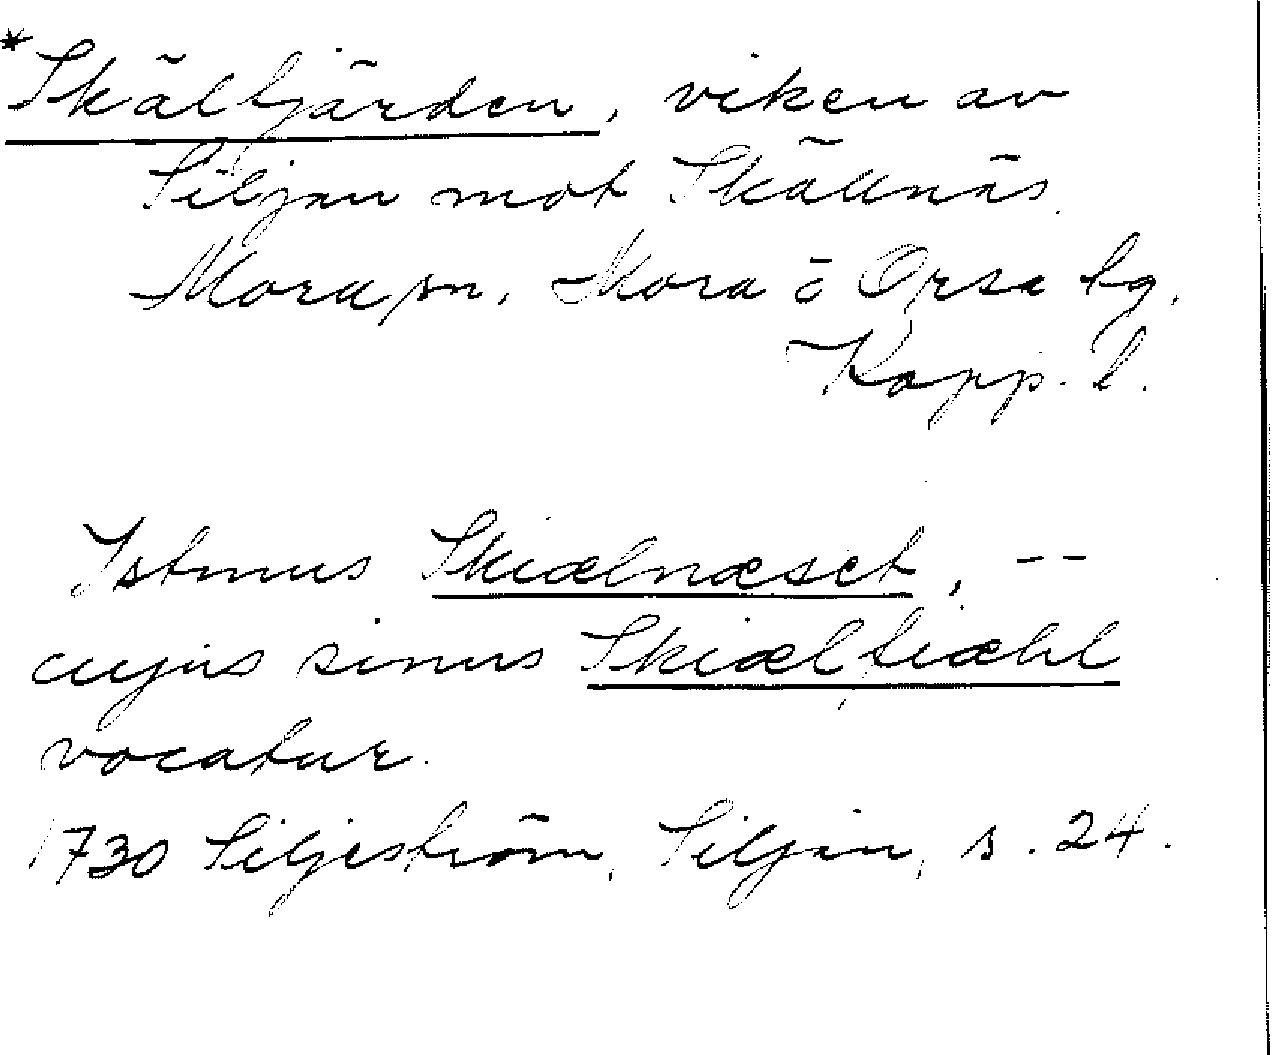 *Skälfjärden, viken av
Siljan mot Skällnäs.
Mora sn, Mora o Orsa tg.
Kopp. l.
Istmus Skiælnæset, --
cujus sinus Skiælfiæhl
vocatur.
1730 Siljeström, Siljan, s. 24.